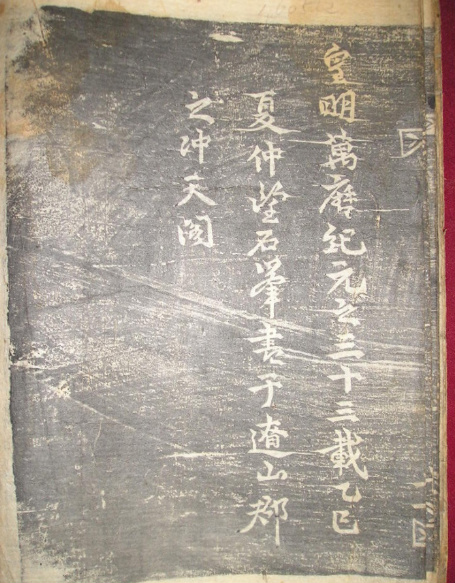 皇明萬曆紀元之三十三載乙巳
夏仲望石峯書于遼山郡
之冲天閣